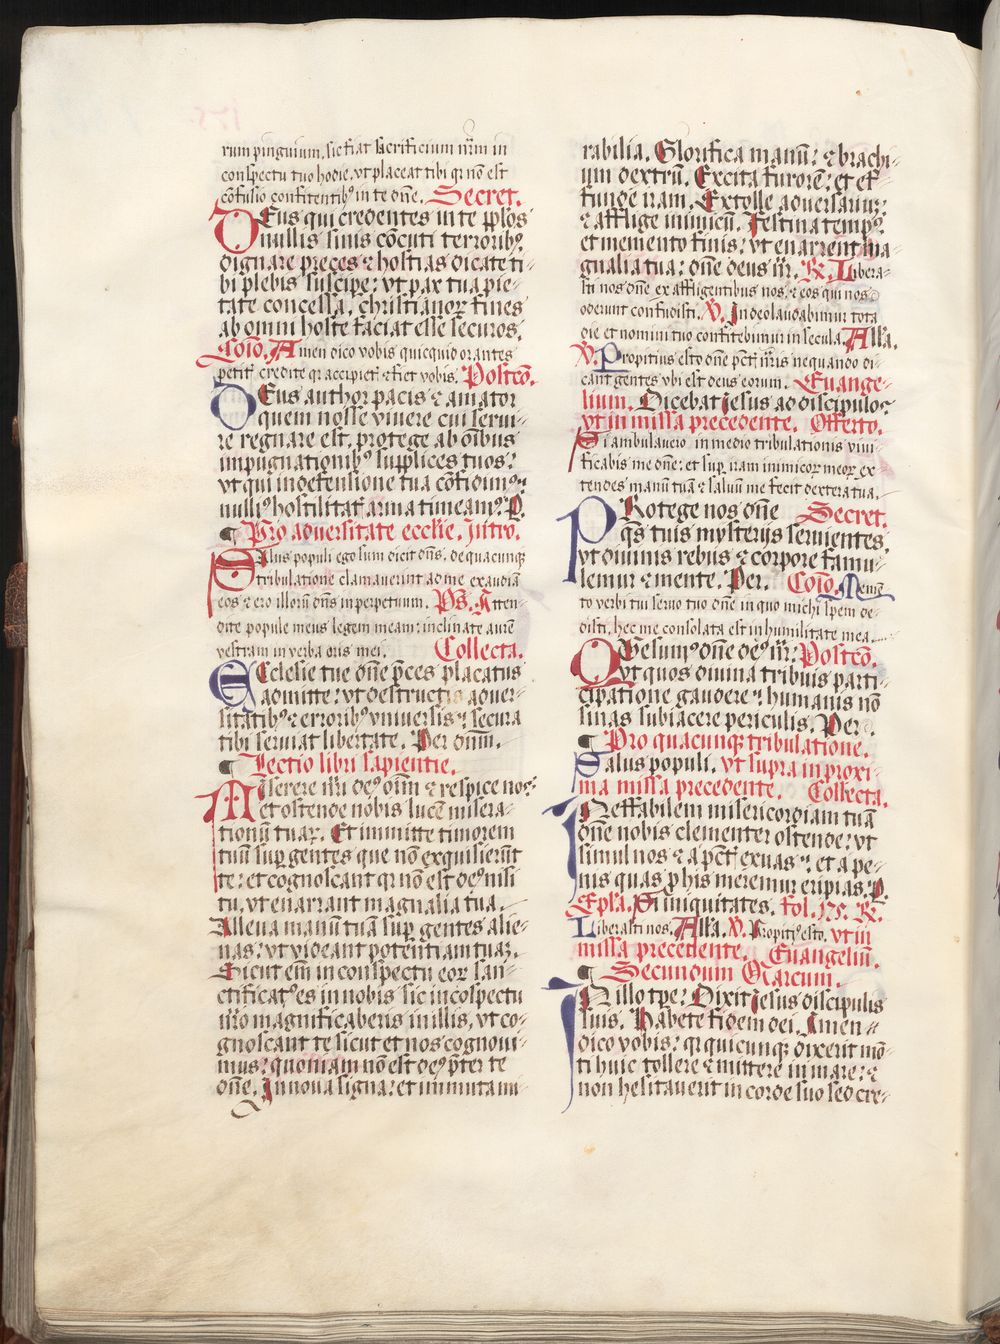 rum pinguium, sic fiat sacrificium nr̄m in
conspectu tuo hodie, vt placeat tibi qr̄ nō est
cōfusio confitentibꝰ in te dn̄e. Secret.
DEus qui credentes in te pp̄los
nullis sinis cōcuti terroribꝰ,
dignare preces ⁊ hostias dicate ti-
bi plebis suscipe: vt pax tua pie-
tate concessa, christianoꝝ fines
ab omni hoste faciat esse securos.
Com̄o. Amen dico vobis quicquid orantes
petit̄ credite qr̄ accipiet̄ ⁊ fiet vobis. Postcō.
DEus author pacis ⁊ amator
quem nosse viuere cui serui-
re regnare est, protege ab oībus
impugnationibꝰ supplices tuos:
vt qui in defensione tua cōfidimꝰ
nulliꝰ hostilitat̄ arma timeamꝰ. P.
¶ Pro aduersitate eccl̄ie. Intro.
Salus populi ego sum dicit dn̄s, de quacunqꝫ
tribulatione clamauerint ad me exaudiā
eos ⁊ ero illorū dn̄s in perpetuum. Ps̄. Atten-
dite popule meus legem meam: inclinate aurē
vestram in verba oris mei. Collecta.
ECclesie tue dn̄e p̄ces placatus
admitte: vt destructis aduer-
sitatibꝰ ⁊ erroribꝰ vniuersis, secura
tibi seruiat libertate. Per dn̄m.
¶ Lectio libri sapientie.
MIserere nr̄i deꝰ oīm ⁊ respice nos
et ostende nobis lucē misera-
tionū tuaꝝ. Et immitte timorem
tuū suꝑ gentes que nō exquisierūt
te: et cognoscant qr̄ nō est deꝰ nisi
tu, vt enarrant magnalia tua.
Alleua manū tuā suꝑ gentes alie-
nas: vt videant potentiam tuā.
Sicut em̄ in conspectu eoꝝ san-
ctificatꝰ es in nobis sic in cōspectu
nr̄o magnificaberis in illis, vt co-
gnoscant te sicut et nos cognoui-
mus: quoniam nō est deꝰ p̄ter te
dn̄e. Innoua signa: et immuta mi-
rabilia. Glorifica manū: ⁊ brachi-
um dextrū. Excita furorē: et ef-
funde iram. Extolle aduersariū:
⁊ afflige inimicū. Festina tempꝰ:
et memento finis: vt enarrent ma-
gnalia tua: dn̄e deus nr̄. R̷. Libera-
sti nos dn̄e ex affligentibus nos: ⁊ eos qui nos
oderunt confudisti. V̷. In deo laudabimur tota
die et nomini tuo confitebimur in secula. Alla.
V̷. Propitius esto dn̄e pct̄is nr̄is nequando di-
cant gentes vbi est deus eorum. Euange-
lium. Dicebat Iesus ad discipulos
vt in missa precedente. Offerto.
Si ambulauero in medio tribulationis viui-
ficabis me dn̄e: et suꝑ iram inimicoꝝ meoꝝ ex-
tendes manū tuā ⁊ saluū me fecit dextera tua.
PRotege nos dn̄e Secret.
qs̄ tuis mysterijs seruientes,
vt diuinis rebus ⁊ corpore famu-
lemur ⁊ mente. Per. Com̄o. Memē-
to verbi tui seruo tuo dn̄e in quo michi spem de-
disti, hec me consolata est in humilitate mea.
QVesumꝰ dn̄e deꝰ nr̄: Postcō.
vt quos diuina tribuis parti-
cipatione gaudere, humanis nō
sinas subiacere periculis. Per.
¶ Pro quacunqꝫ tribulatione.
Salus populi. vt supra in proxi-
ma missa precedente. Collecta.
INeffabilem misericordiam tuā
dn̄e nobis clementer ostende: vt
simul nos ⁊ a pct̄is exuas, et a pe-
nis quas ꝓ his meremur eripias. P.
Epl̄a. Si iniquitates. fol. 175. R̷.
Liberasti nos. Alla. V̷. Propitiꝰ esto. vt in
missa precedente. Euangeliū.
¶ Secundum Marcum.
IN illo tp̄e: Dixit Iesus discipulis
suis. Habete fidem dei. Amen
dico vobis: qr̄ quicunqꝫ dixerit mō-
ti huic tollere ⁊ mittere in mare: ⁊
non hesitauerit in corde suo sed cre-